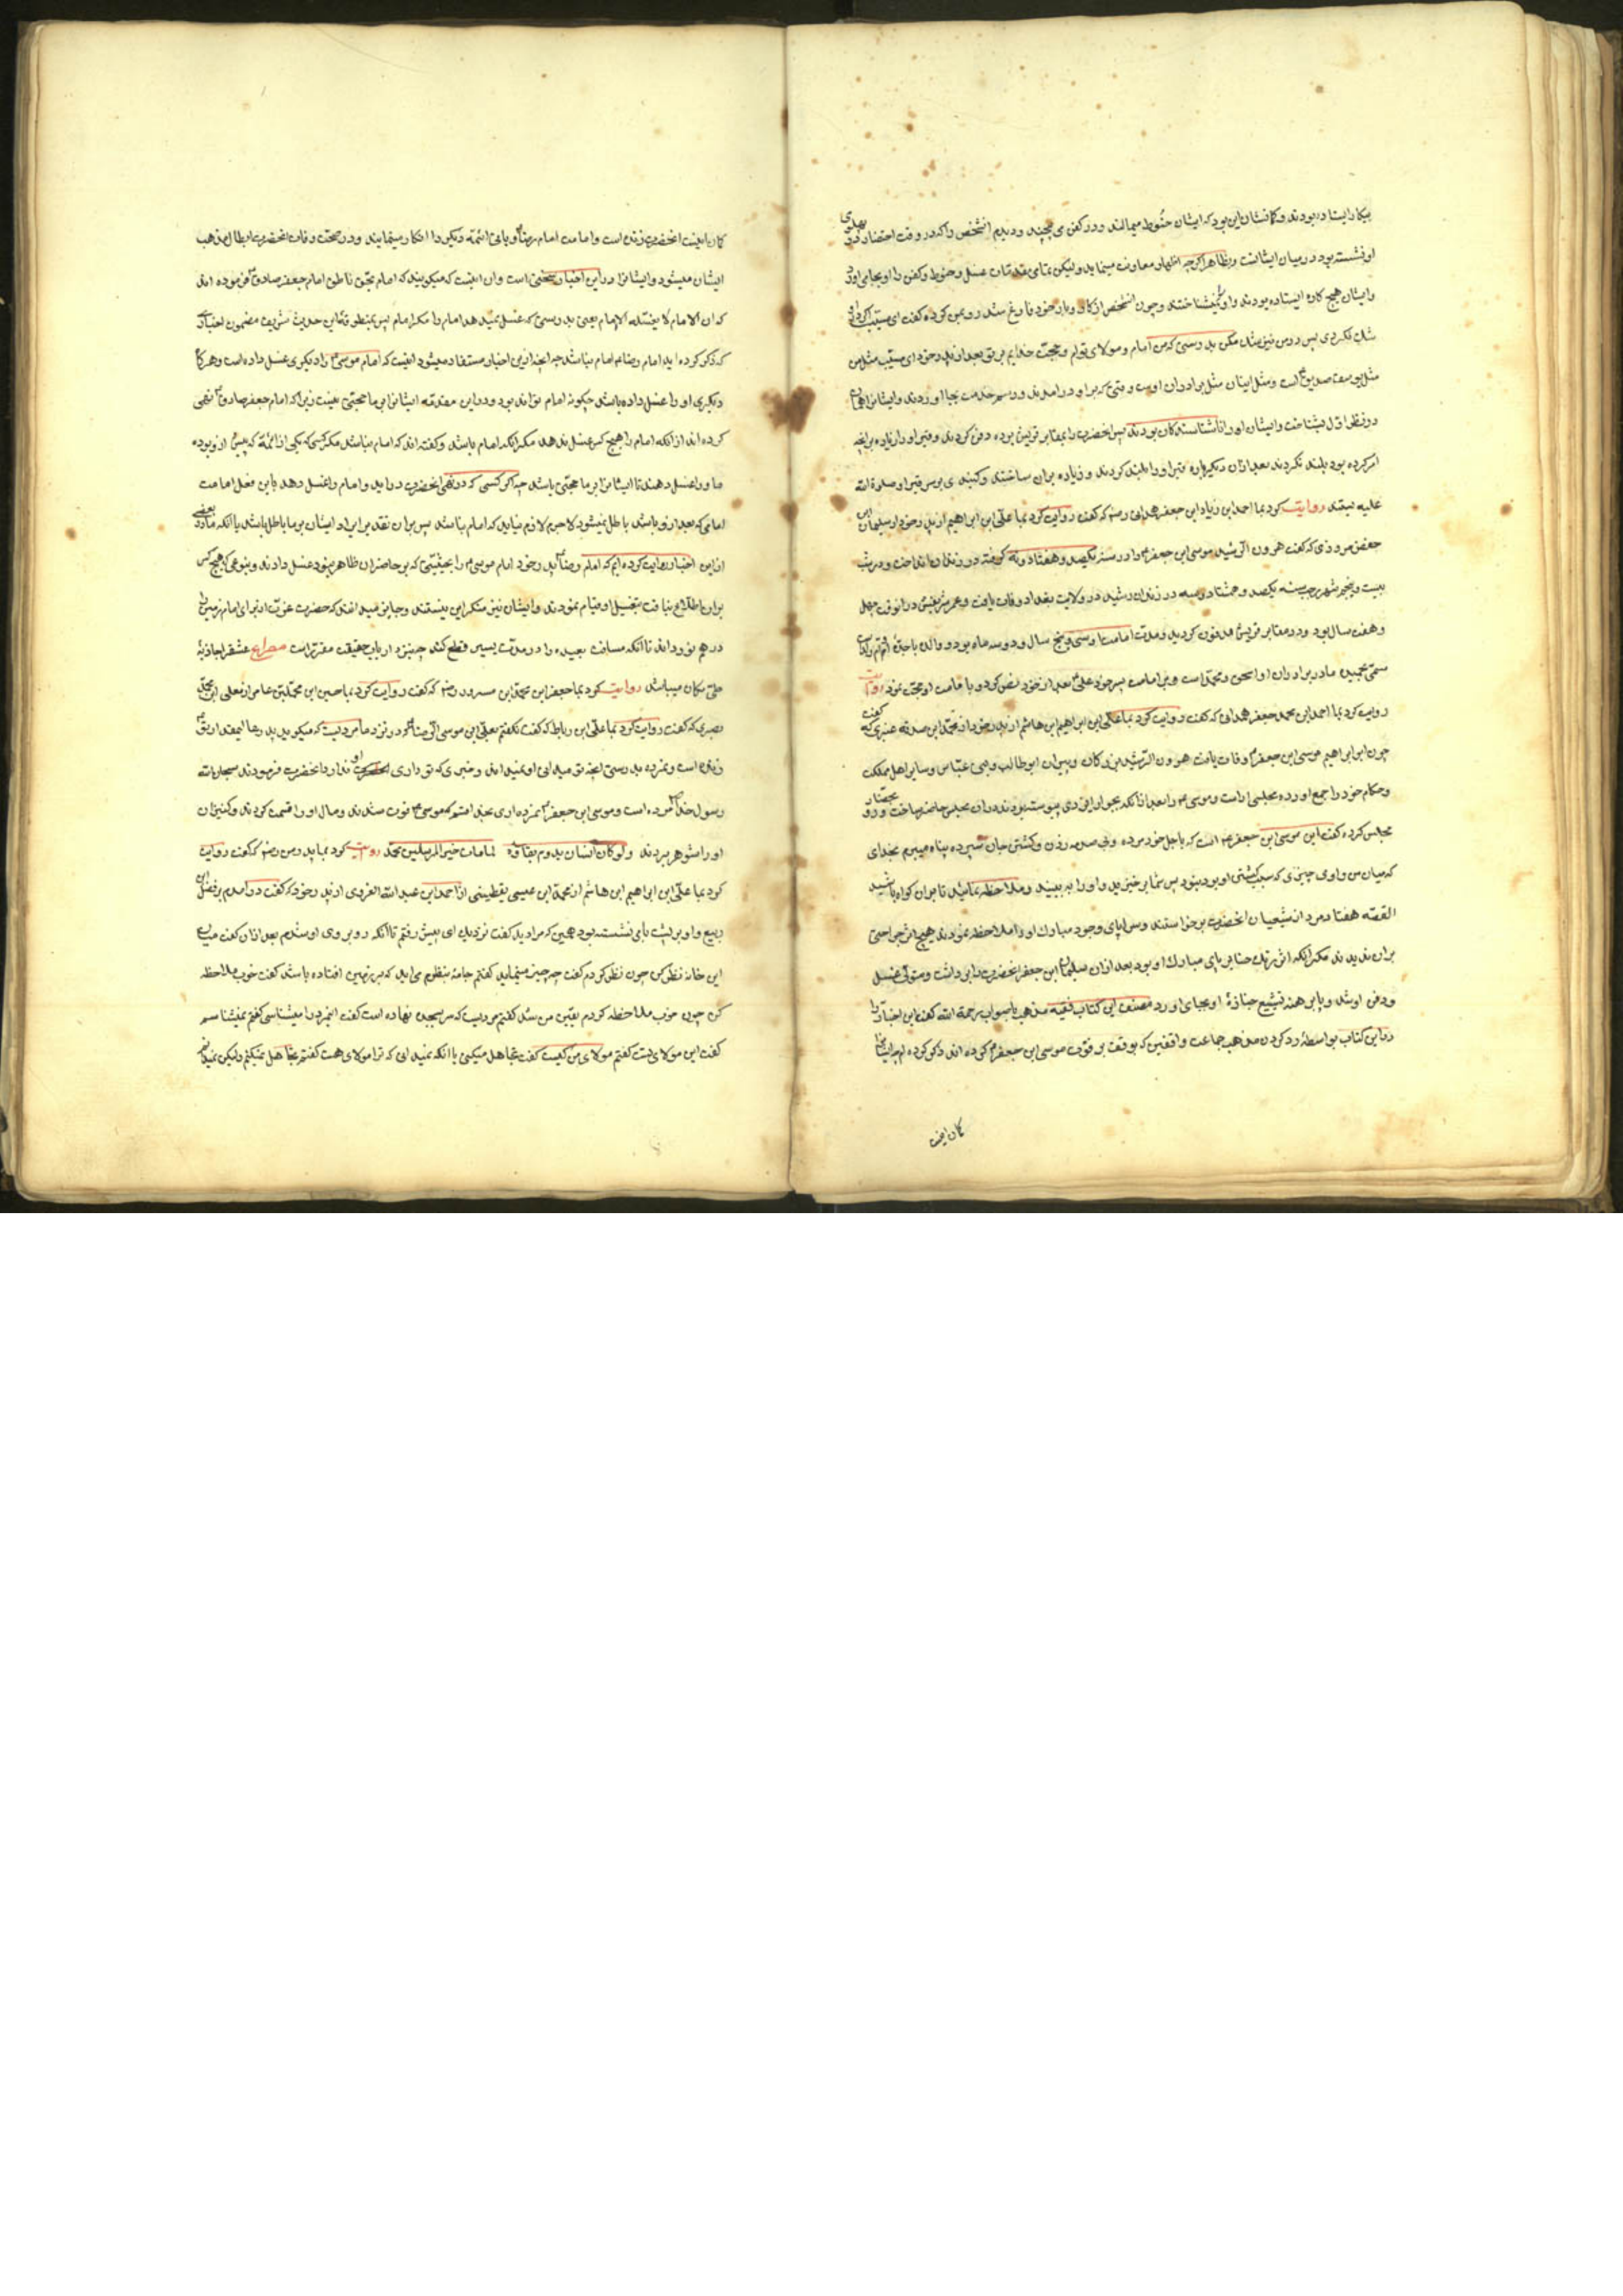 بیکار ایستاده بودند و کمانشان این بود که ایشان حنوط میمالند و در کفن می‌پیچند و دیدم آنشخص را که در وقت احتضار در پهلوی
او نشسته بود در میان ایشانست و بظاهر اگرچه اظهار معاونت مینماید ولیکن بتمامی غسل و حنوط و کفن را او بجا می‌اورد
و ایشان هیچ کاره ایستاده بودند و او را نمیشناختند و چون آنشخص از کار و بار خود فارغ شد رو بمن کرده کفت ای مسیب اگر در
شک نکردی پس در من نیز شک مکن بدرستی که من امام و مولای توام و حجت خدایم بر تو بعد از پدر خود ای مسیب مثل من
مثل یوسف صدیق است و مثل ایشان مثل برادران اوست وقتی که بر او در امدند و رسم خدمت بجا اوردند و ایشانرا همان
در نظر اول بشناخت و ایشان او را ناشناسندکان بودند پس انحضرت را بمقابر قریش بوده دفن کردند و قبر او را زیاده بر انچه
امر کرده بود بلند نکردند بعد ازان دیکر باره قبر او را بلند کردند و زیاده بران ساختند و کنبدی بر سر قبر او صلوة الله
علیه بستند روایت کرد بما احمد ابن زیاد ابن جعفر همدانی رضه که کفت روایت کرد بما علی ابن ابراهیم از پدر خود از سلیمان ابن
جعفر مروزی که کفت هرون الرشید موسی ابن جعفر را در سنه یکصد و هفتاد و نه کرفته در زندان انداخت و در شب
بیست و پنجم شهر رجب سنه یکصد و هشتاد و سه در زندان رشید در ولایت بغداد وفات یافت و عمر شریفش در انوقت چهل
و هفت سال بود و در مقابر قریش مدفون کردید و مدت امامت او سی و پنج سال و دو سه ماه بود و والده ماجده
مادر برادران او اسحق و محمد است و بر امامت پسر خود علی بعد از خود نص کرد و با مامت او حجت نمود روایت
روایت کرد بما احمد ابن محمد جعفر همدانی که کفت روایت کرد بما علی ابن ابراهیم ابن هاشم از پدر خود از محمد ابن صدقه عنبری که کفت
چون ابو ابراهیم موسی ابن جعفر وفات یافت هرون الرشید بزرکان و پیران ابوطالب و بنی عباس و سایر اهل مملکت
و حکام خود را جمع اورده مجلسی اراست و موسی را بعد ازانکه بجوار ایزدی پیوسته بودند دران مجلس حاضر ساخت و رو بحضار
مجلس کرده کفت این موسی ابن جعفر است که باجل خود مرده و بی صدمه زدن و کشتن جان سپرده پناه میبرم بخدای
که میان من و اوی چیزی که سبب کشتن او بود نبود پس شما برخیزید و او را به بینید و ملاحظه نمائید تا بران کواه باشید
القصه هفتاد مرد از شیعیان انحضرت برخواستند و سراپای وجود مبارک او را ملاحظه نمودند هیچ اثر جراحتی
بران ندیدند مکر انکه اثر رنک حنا بر پای مبارک او بود بعد ازان سلیمان ابن جعفر انحضرت را بر داشت و متولی غسل
و دفن او شد و پا برهنه تشییع جنازه او بجای اورد مصنف این کتاب فقیه مذهب بالصواب رحمة الله کفت این اخبار را
در این کتاب بواسطه رد کردن مذهب جماعت واقفین که بوقف بر فوت موسی ابن جعفر کرده اند ذکر کرده ام چه ایشانرا
کمان اینست
کمان اینست انحضرت زنده است و امامت امام رضا و باقی ائمه دیکر را انکار مینمایند و در صحت وفات انحضرت ابطال مذهب
ایشان میشود و ایشانرا در این اخبار سخنی است و ان اینست که میکویند که امام بحق ناطق امام جعفر صادق فرموده اند
که ان الامام لا یغسله الا الامام یعنی بدرستی که غسل نمیدهد امام را مکر امام پس بمنطوق این حدیث شریف مضمون اخباری
که ذکر کرده اید امام رضا امام نباشد چه انچه ازین اخبار مستفاد میشود اینست که امام موسی را دیکری غسل داده است و هرکاه
دیکری او را غسل داده باشد چکونه امام تواند بود و در این مقدمه ایشانرا بر ما حجتی نیست زیرا که امام جعفر صادق نهی
کرده اند از انکه امام را هیچ کس غسل ندهد مکر انکه امام باشد و کفته اند که امام نباشد مکر کسی که یکی از ائمه که پیش ازو بوده
ما و را غسل دهند تا ایشانرا بر ما حجتی باشد چه اکر کسی که در نهی انحضرت در اید و امام را غسل دهد باین فعل امامت
امامی که بعد ازو باشد باطل نمیشود لاجرم لازم نیاید که امام نباشد پس بران تقدیر ایراد ایشان بر ما باطل باشد با انکه ما در بعضی
از این اخبار روایت کرده ایم که امام رضا پدر خود امام موسی را بحیثیتی که بر حاضران ظاهر نبود غسل دادند و بنوعی که هیچ کس
بران اطلاع نیافت بتغسیل او قیام نمودند و ایشان نیز منکر این نیستند و جایز میدانند که حضرت عزت از برای امام زمین را
درهم نوردانند تا انکه مسافت بعیده را در مدت یسیر قطع کند چه نزد ارباب حقیقت مقرر است مصراع عشق را جاذبه
طی مکان میباشد روایت کرد بما جعفر ابن محمد ابن مسرور رضه که کفت روایت کرد بما حسین ابن محمد ابن عامر از معلی ابن محمد
بصری که کفت روایت کرد بما علی ابن رباط که کفت بکفتم بعلی ابن موسی الرضا که در نزد ما مردیست که میکوید پدر شما
زنده است و نمرده بدرستی انچه تو میدانی او نمیداند و خبری که تو داری او ندارد انحضرت فرمودند سبحان الله
رسول خدا مرده است و موسی ابن جعفر نمرده اری بخدا قسم که موسی فوت شدند و مال او را قسمت کردند و کنیزان
او را شوهر بردند ولو کان انسان یدوم بقاؤه لما مات خیر المرسلین محمد روایت کرد بما پدر من رضه که کفت روایت
کرد بما علی ابن ابراهیم ابن هاشم از محمد ابن عیسی یقطینی از احمد ابن عبد الله الغروی از پدر خود که کفت در امدم بر فضل ابن
ربیع و او بر پشت بامی نشسته بود همین که مرا دید کفت نزدیک ای پیش رفتم تا انکه رو بروی او شدم بعد ازان کفت میان
این خانه نظر کن چون نظر کردم کفت چه چیز مینماید کفتم جامه بنظرم می اید که بر زمین افتاده باشد کفت خوب ملاحظه
کن چون خوب ملاحظه کردم یقین من شد کفتم مردیست که سر بسجده نهاده است کفت انمرد را میشناسی کفتم نمیشناسم
کفت این مولای تست کفتم مولای من کیست کفت تجاهل میکنی یا انکه نمیدانی که ترا مولای هست کفتم تجاهل نمیکنم ولیکن نمیدانم